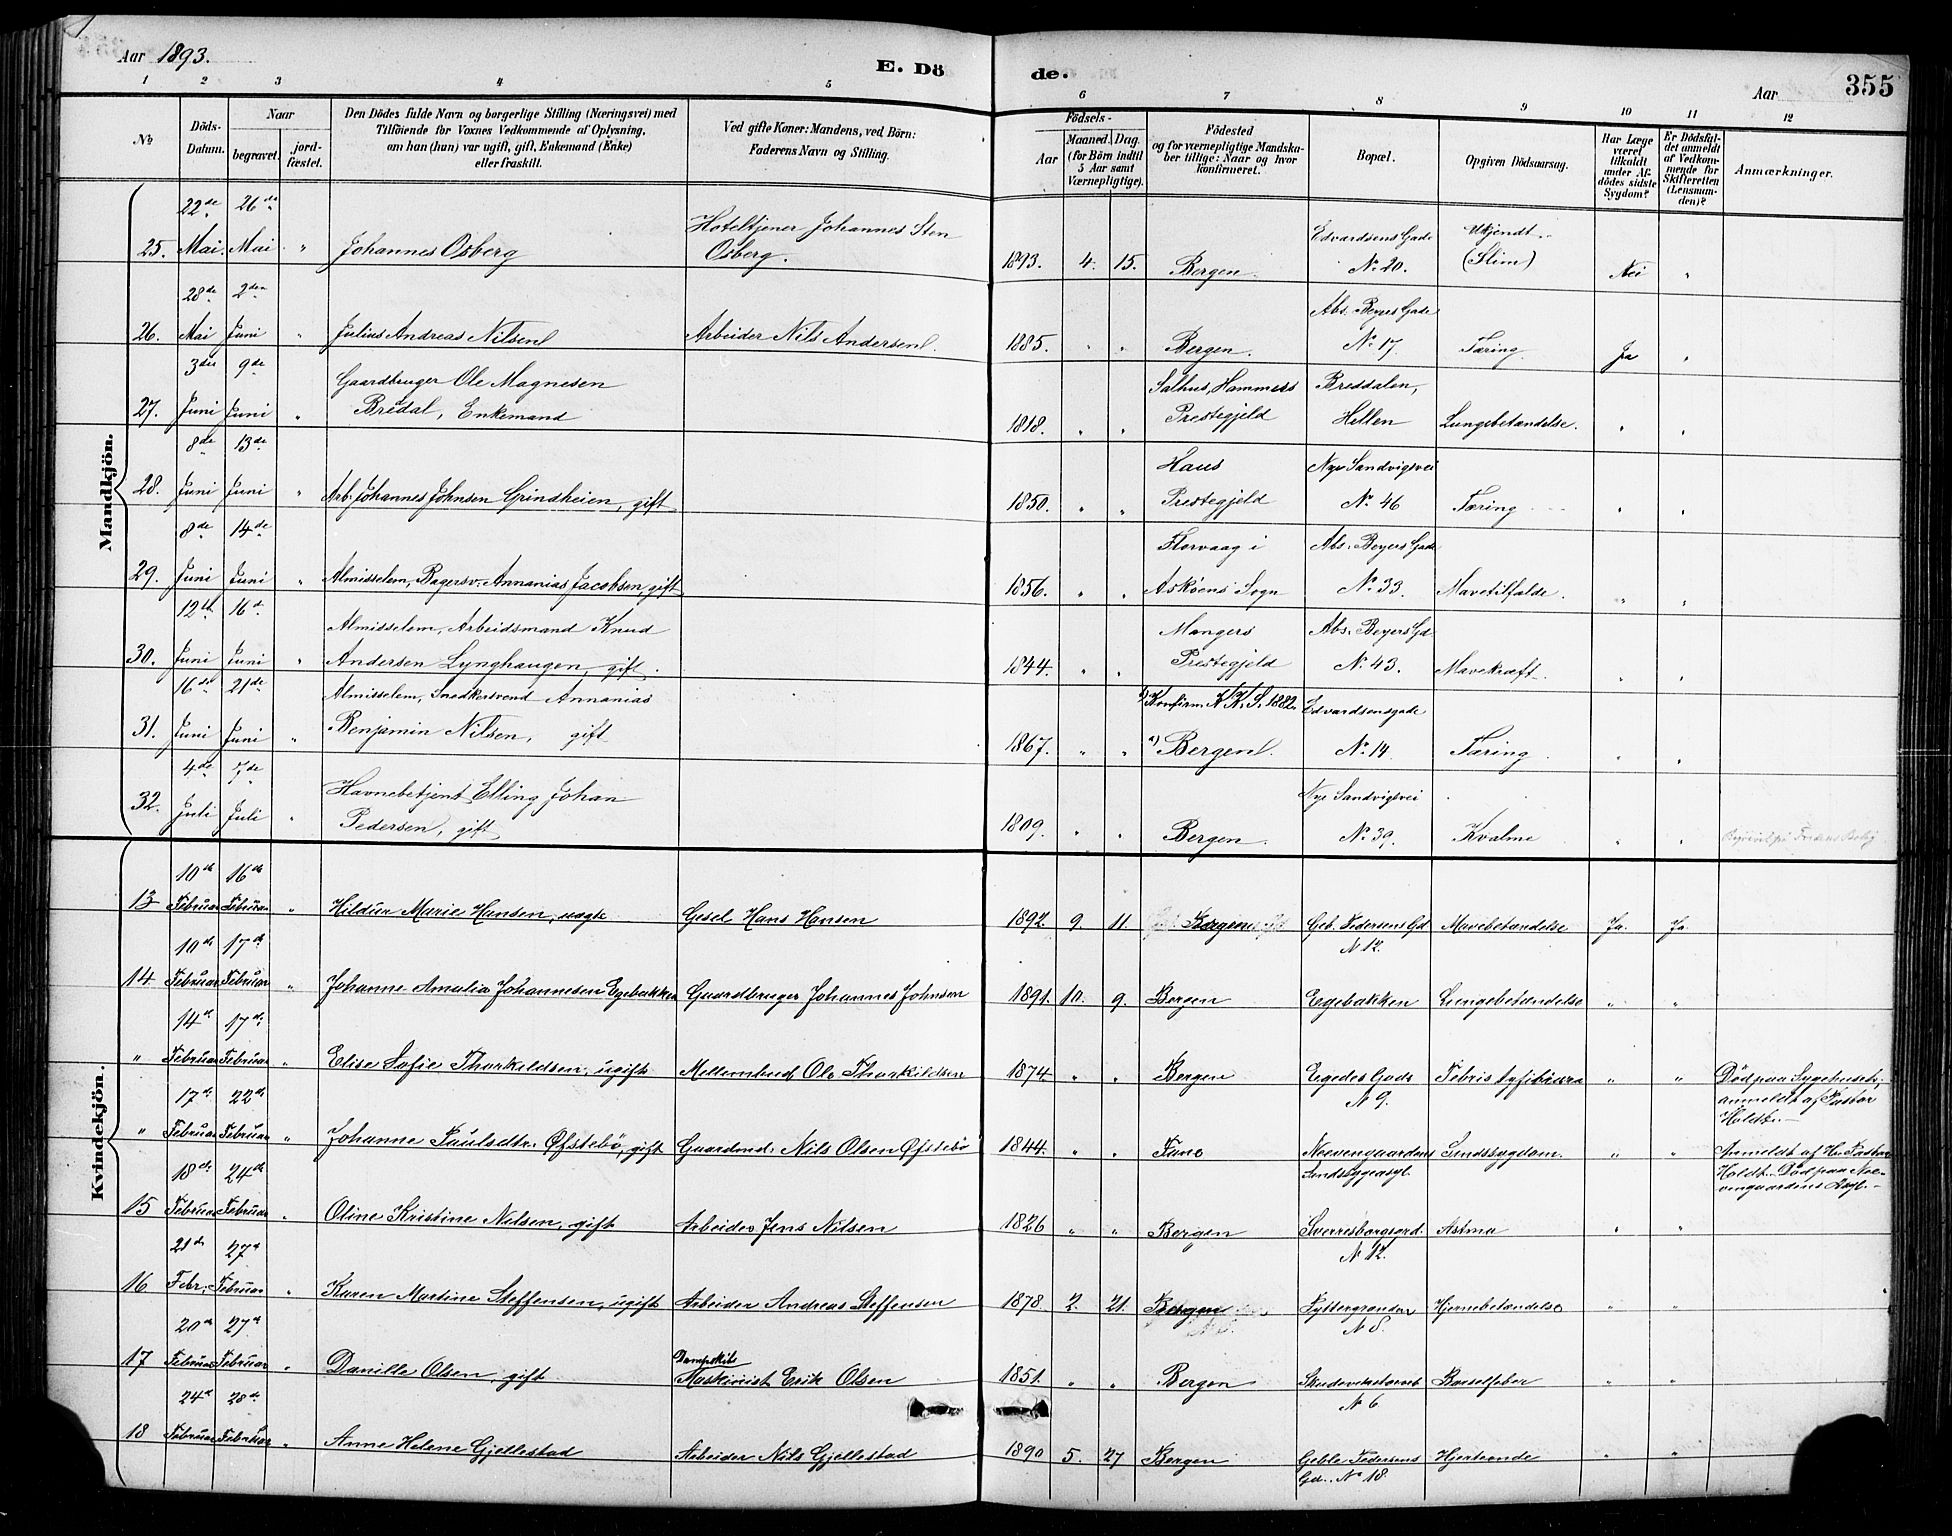 Aar 1893.
E. Dö
de.
Aar
355
1 2 3 4 5 6 7 8 9 10 11 12
No
Döds-
Datum.
Naar
begravet.
jord-
fæstet.
Den Dödes fulde Navn og borgerlige Stilling (Næringsvei) med
Tilföiende for Voxnes Vedkommende af Oplysning,
om han (hun) var ugift, gift, Enkemand (Enke)
eller fraskilt.
Ved gifte Koner: Mandens, ved Börn:
Faderens Navn og Stilling.
Födsels-
Aar
Maaned.
Dag.
(for Börn indtil
5 Aar samt
Værnepligtige).
Födested
og for værnepligtige Mandska-
ber tillige: Naar og hvor
konfirmeret.
Bopæl.
Opgiven Dödsaarsag.
Har Læge
været
tilkaldt
under Af-
dödes sidste
Sygdom?
Er Dödsfal-
det anmeldt
af Vedkom-
mende for
Skifteretten
(Lensman-
den)?
Anmærkninger.
Mandkjön.
22de 26de
Hoteltjener Johannes Sten Edvardsens Gade Ukjendt
25. Mai. Mai " Johannes Osberg Osberg. 1893. 4. 15. Bergen. No 20. (Slim) Nei "
28de 2den
Abs. Beyers Gade
26. Mai Juni " Julius Andreas Nilsen Arbeider Nils Andersen. 1885. " " Bergen. No 17. Tæring Ja "
3die 9de
Gaardbruger Ole Magnesen Salhus, Hammers Breddalen,
27. Juni Juni " Bredal, Enkemand 1818. " " Prestegjeld Hellen Lungebetændelse. " "
8de 13de
Haus Nye Sandvigsvei
28. Juni Juni " Arb. Johannes Johnsen Grindheien, gift 1850. " " Prestegjeld No 46 Tæring " "
8de 14de
Florvaag i Abs. Beyers Gade
29. Juni Juni " Almisselem, Bagersv. Annanias Jacobsen, gift 1856. " " Askøens Sogn No 33. Mavetilfælde. " "
12te 16de
Almisselem, Arbeidsmand Knud Mangers Abs. Beyers Gd
30. Juni Juni " Andersen Lynghaugen, gift. 1844. " " Prestegjeld No 43. Mavekræft. " "
16de 21de
Almisselem, Snedkersvend Annanias Konfirm. N. K. S. 1882. Edvardsensgade
31. Juni Juni " Benjamin Nilsen, gift 1867. " " Bergen. No 14. Tæring " "
4de 7de
Havnebetjent Elling Johan Nye Sandvigsvei
32. Juli Juli " Pedersen, gift 1809. " " Bergen. No 39. Kvalme " "
Kvindekjön.
10de 16de
13 Februar Februar " Hildur Marie Hansen, uægte Gesel Hans Hansen 1892. 9. 11. Bergen Geb. Pedersens Gd Mavebetændelse Ja. Ja.
N 12.
10de 17de
14 Februar Februar " Johanne Amalia Johannesen Egebakken Gaardbruger Johannes Johnsen 1891. 10. 9. Bergen Egebakken Lungebetændelse " "
14de 17de
" Februar Februar " Elise Sofie Thorkildsen, ugift Mellembud Ole Thorkildsen 1874. " " Bergen Egedes Gade Febris tyfoidea " " Död paa Sygehuset;
N 9. anmeldt af Pastor
Holdt.-
17de 22de
" Februar Februar " Johanne Paulsdtr. Øfstebö, gift Gaardmd. Nils Olsen Øfstebö 1844. " " Fane Neevengaardens Sindssygdom. " " Anmeldt af Hr. Pastor
Sindssygeasyl. Holdt. Död paa Nee-
vengaardens Asyl.-
18de 24de
15 Februar Februar " Oline Kristine Nilsen, gift Arbeider Jens Nilsen 1826 " " Bergen Sverresborgsgd. Astma " "
N 12.
21de 27de
16 Febr. Februar " Karen Martine Steffensen, ugift Arbeider Andreas Steffensen 1878 2. 21. Bergen Pyttergranden Hjernebetændelse " "
N 8.
20de 27de
Dampskibs
17 Februar Februar " Danille Olsen, gift Maskinist Erik Olsen 1851. " " Bergen Barselfeber " "
N 6.
24de 28de
18 Februar Februar " Anne Helene Gjellestad Arbeider Nils Gjellestad 1890 5. 27 Bergen Geble Pedersens Hjerteonde " "
Gd. No 18